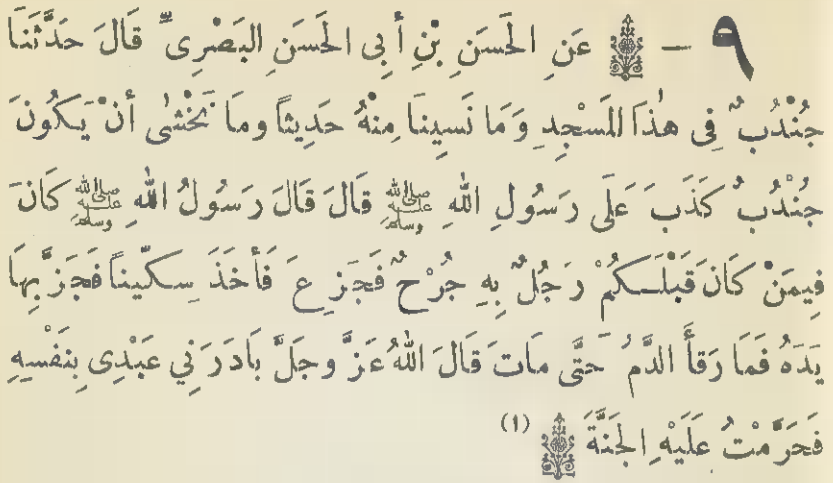 ٩ – عَنِ الْحَسَنِ بْنِ أَبِى الْحَسَنِ البَصْرِىِّ قَالَ حَدَّثَنَا
جُنْدُبٌ فِى هٰذَا المَسْجِدِ وَمَا نَسِينَا مِنْهُ حَدِيثاً ومَا نَخْشٰى أنْ يَكُونَ
جُنْدُبٌ كَذَبَ عَلَى رَسُولِ اللهِ ﷺ قَالَ قَالَ رَسُولُ اللهِ ﷺ كَانَ
فِيمَنْ كَانَ قَبْلَـكُمْ رَجُلٌ بِهِ جُرْحٌ فَجَزِعَ فَأَخَذَ سِكِّيناً فَجَزَّ بِهَا
يَدَهُ فَمَا رَقَأَ الدَّمُ حَتَّى مَاتَ قَالَ اللهُ عَزَّ وجَلَّ بَادَرَنِي عَبْدِى بِنَفْسِهِ
فَحَرَّمْتُ عَلَيْهِ الْجَنَّةَ (١)